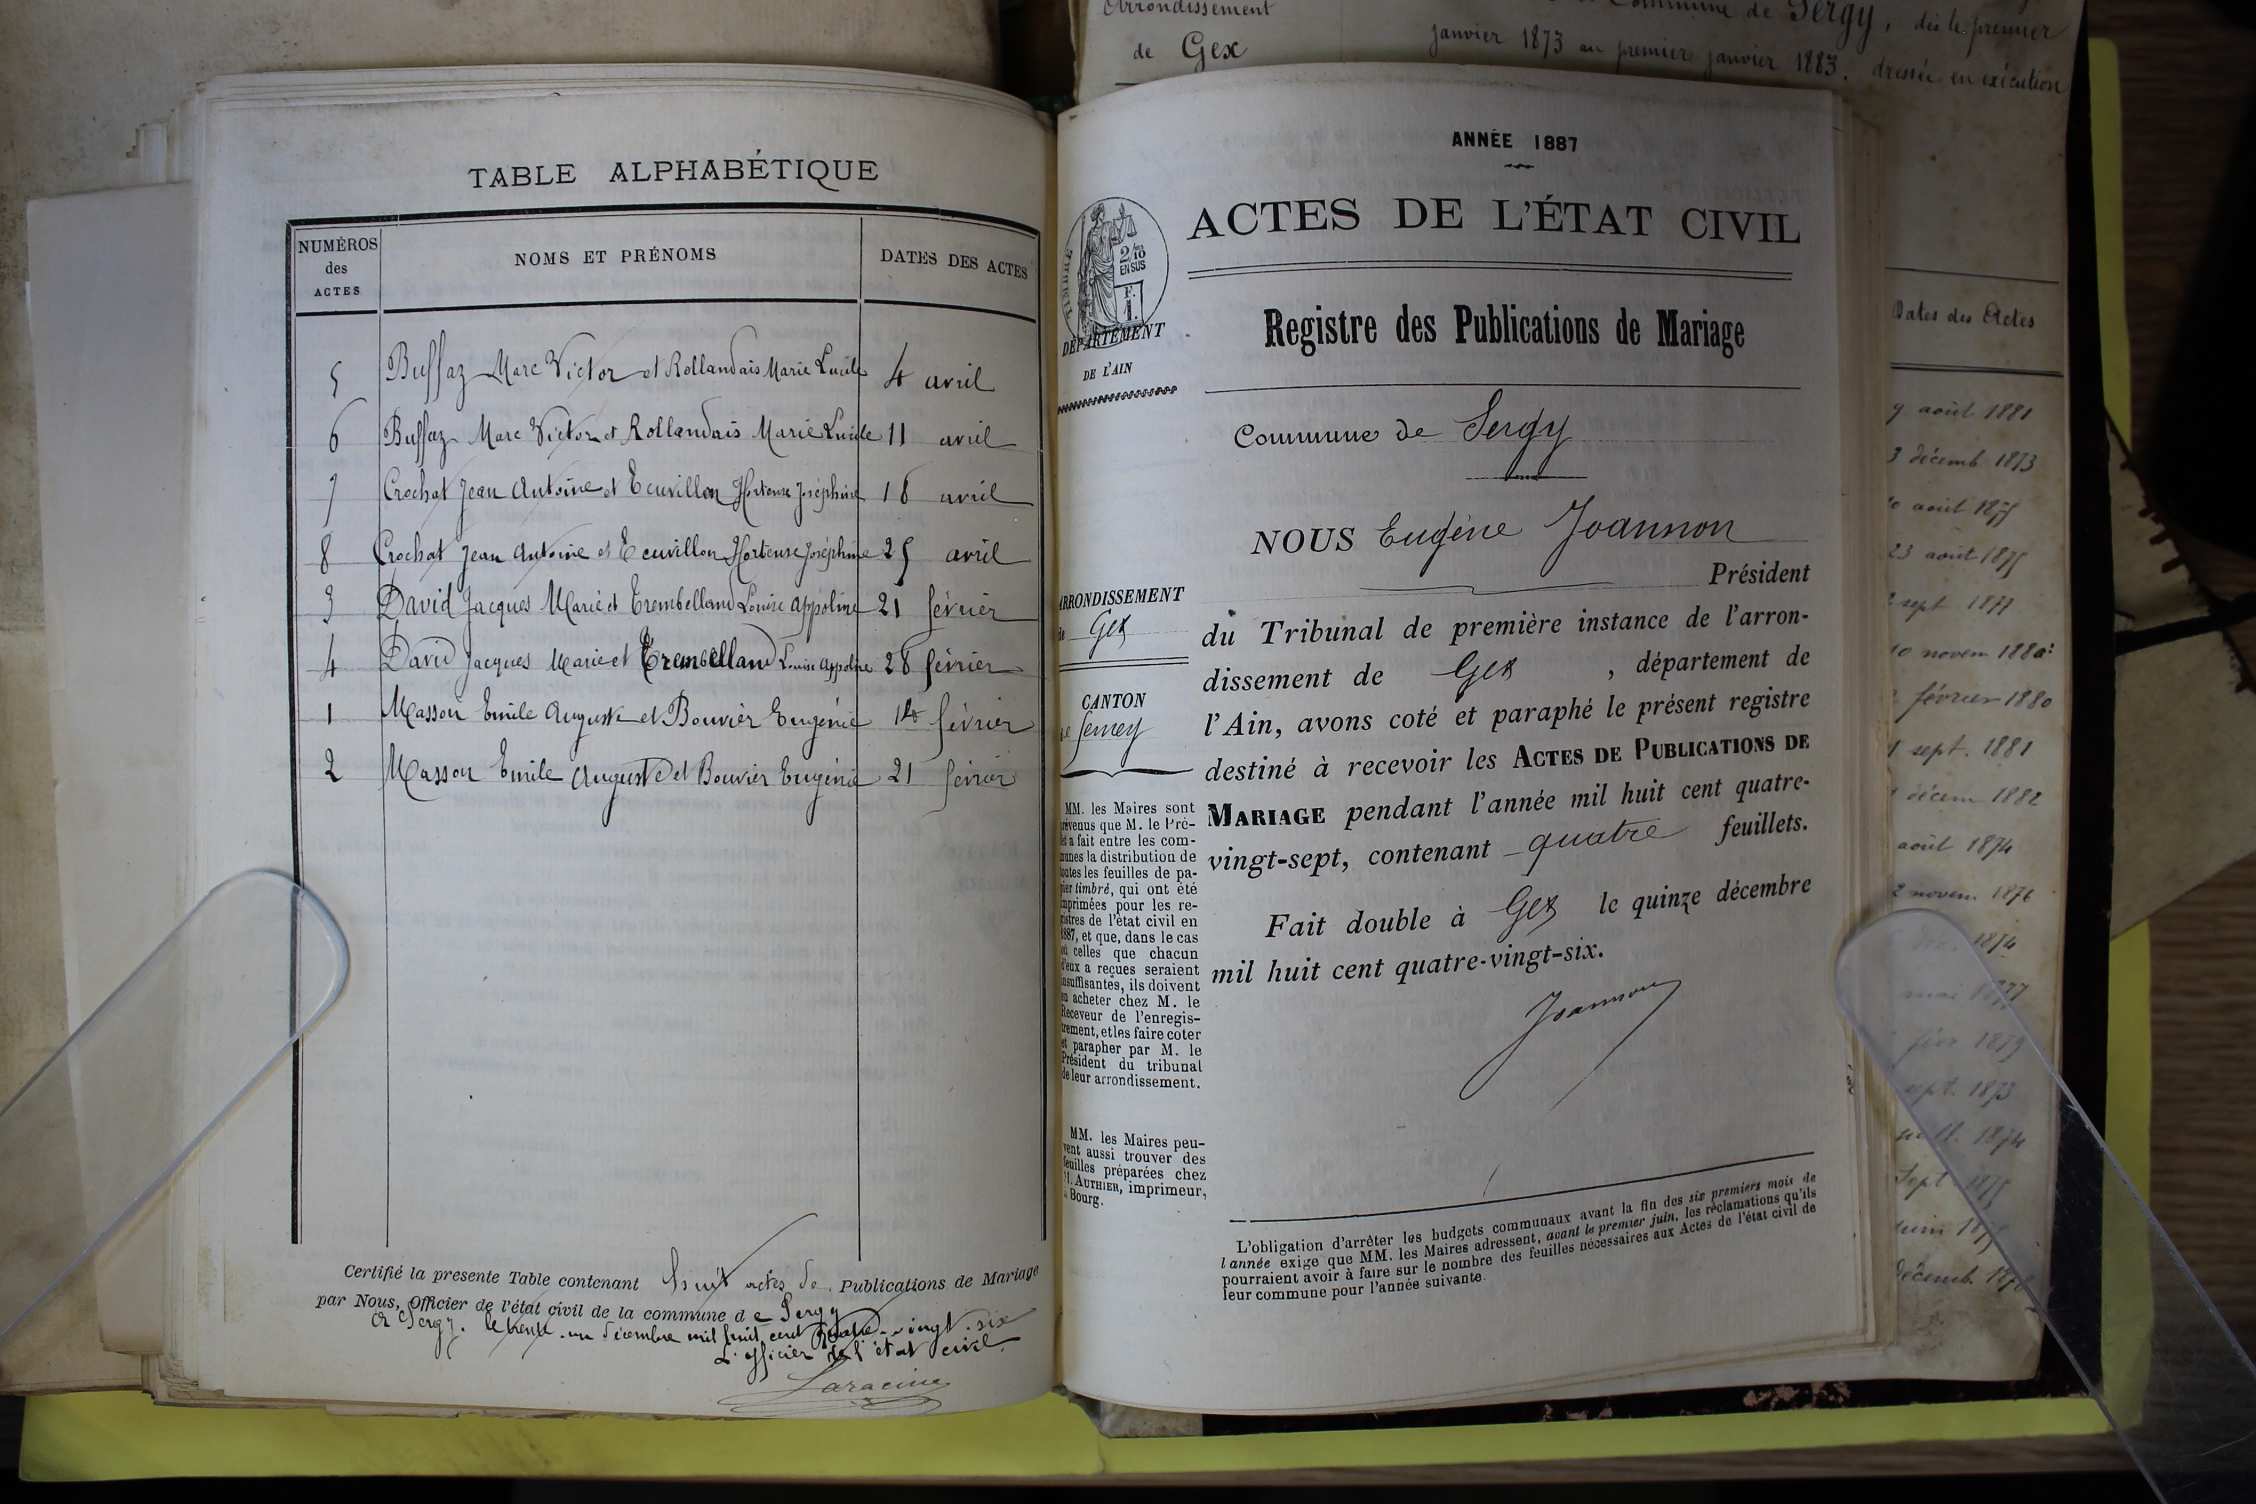 TABLE ALPHABÉTIQUE
NUMÉROS des ACTES
NOMS ET PRÉNOMS
DATES DES ACTES
5 Buffaz Marc Victor et Rollandais Marie Lucile 4 avril
6 Buffaz Marc Victor et Rollandais Marie Lucile 11 avril
7 Crochat Jean Antoine et Ecuvillon Hortense Joséphine 18 avril
8 Crochat Jean Antoine et Ecuvillon Hortense Joséphine 25 avril
3 David Jacques Marie et Trembelland Louise Appoline 21 février
4 David Jacques Marie et Trembelland Louise Appoline 28 février
1 Masson Emile Auguste et Bouvier Eugénie 14 février
2 Masson Emile Auguste et Bouvier Eugénie 21 février
Certifié la presente Table contenant huit actes de Publications de Mariage
par Nous, Officier de l'état civil de la commune d e Sergy
A Sergy, le trente-un décembre mil huit cent quatre-vingt-six
L'officier de l'état civil.
Laracine
Arrondissement
de Gex
Commune de Sergy, dès le premier
janvier 1873 au premier janvier 1883, dressée en exécution
ANNÉE 1887
ACTES DE L'ÉTAT CIVIL
TIMBRE
2/10 EN SUS
F. 1.
DÉPARTEMENT
DE L'AIN
Registre des Publications de Mariage
Commune de Sergy
NOUS Eugène Joannon
Président
ARRONDISSEMENT
de Gex
CANTON
de Ferney
du Tribunal de première instance de l'arron-
dissement de Gex, département de
l'Ain, avons coté et paraphé le présent registre
destiné à recevoir les ACTES DE PUBLICATIONS DE
MARIAGE pendant l'année mil huit cent quatre-
vingt-sept, contenant quatre feuillets.
Fait double à Gex le quinze décembre
mil huit cent quatre-vingt-six.
Joannon
MM. les Maires sont
prévenus que M. le Pré-
fet a fait entre les com-
munes la distribution de
toutes les feuilles de pa-
pier timbré, qui ont été
imprimées pour les re-
gistres de l'état civil en
1887, et que, dans le cas
où celles que chacun
d'eux a reçues seraient
insuffisantes, ils doivent
en acheter chez M. le
Receveur de l'enregis-
trement, et les faire coter
et parapher par M. le
Président du tribunal
de leur arrondissement.
MM. les Maires peu-
vent aussi trouver des
feuilles préparées chez
M. AUTHIER, imprimeur,
à Bourg.
L'obligation d'arrêter les budgets communaux avant la fin des six premiers mois de
l'année exige que MM. les Maires adressent, avant le premier juin, les réclamations qu'ils
pourraient avoir à faire sur le nombre des feuilles nécessaires aux Actes de l'état civil de
leur commune pour l'année suivante.
Dates des Actes
9 août 1881
3 décemb 1873
août 1875
23 août 1875
sept 1877
10 novem 1880
février 1880
sept. 1881
décem 1882
août 1874
2 novem. 1876
1874
mai 1877
févr 1879
sept. 1873
1874
Sept 1875
juin 1875
décemb. 1878